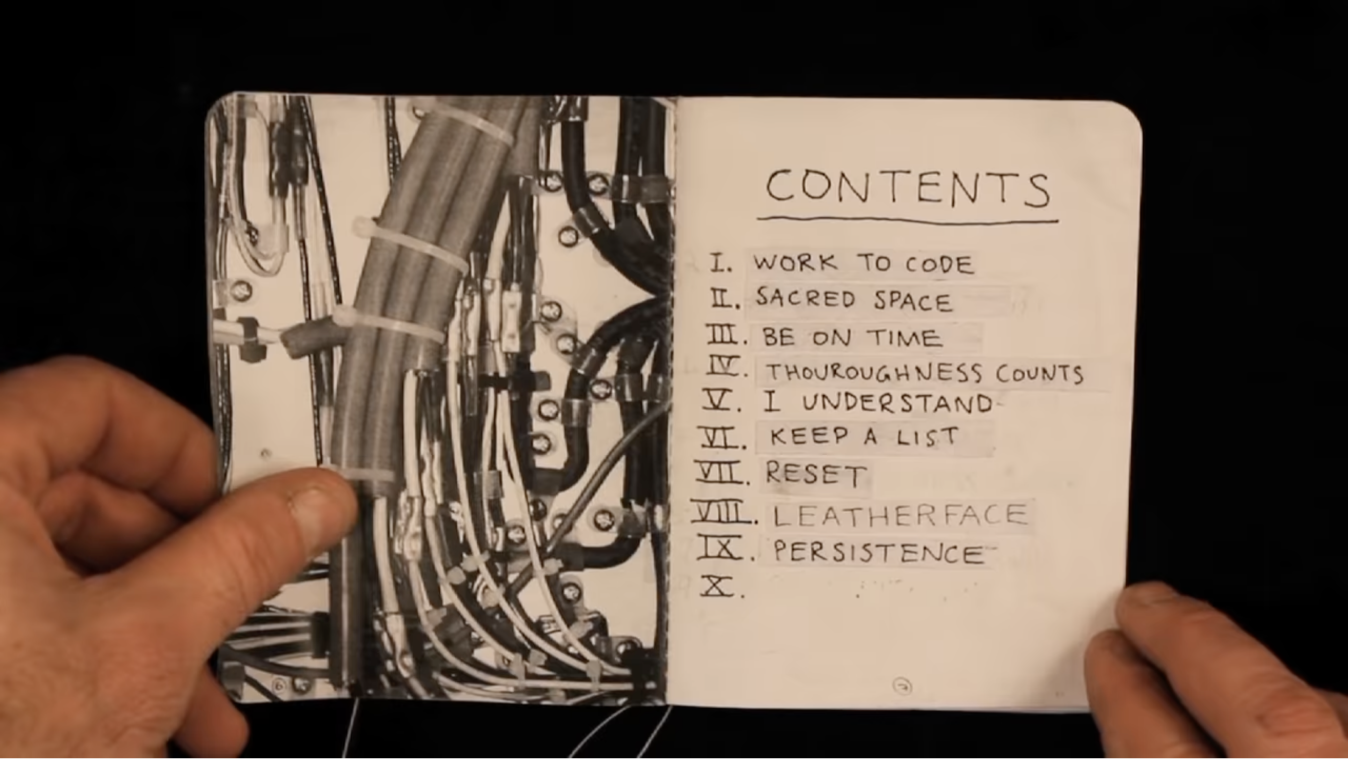 CONTENTS
I. WORK TO CODE
II. SACRED SPACE
III. BE ON TIME
IV. THOUROUGHNESS COUNTS
V. I UNDERSTAND
VI. KEEP A LIST
VII. RESET
VIII. LEATHERFACE
IX. PERSISTENCE
X.